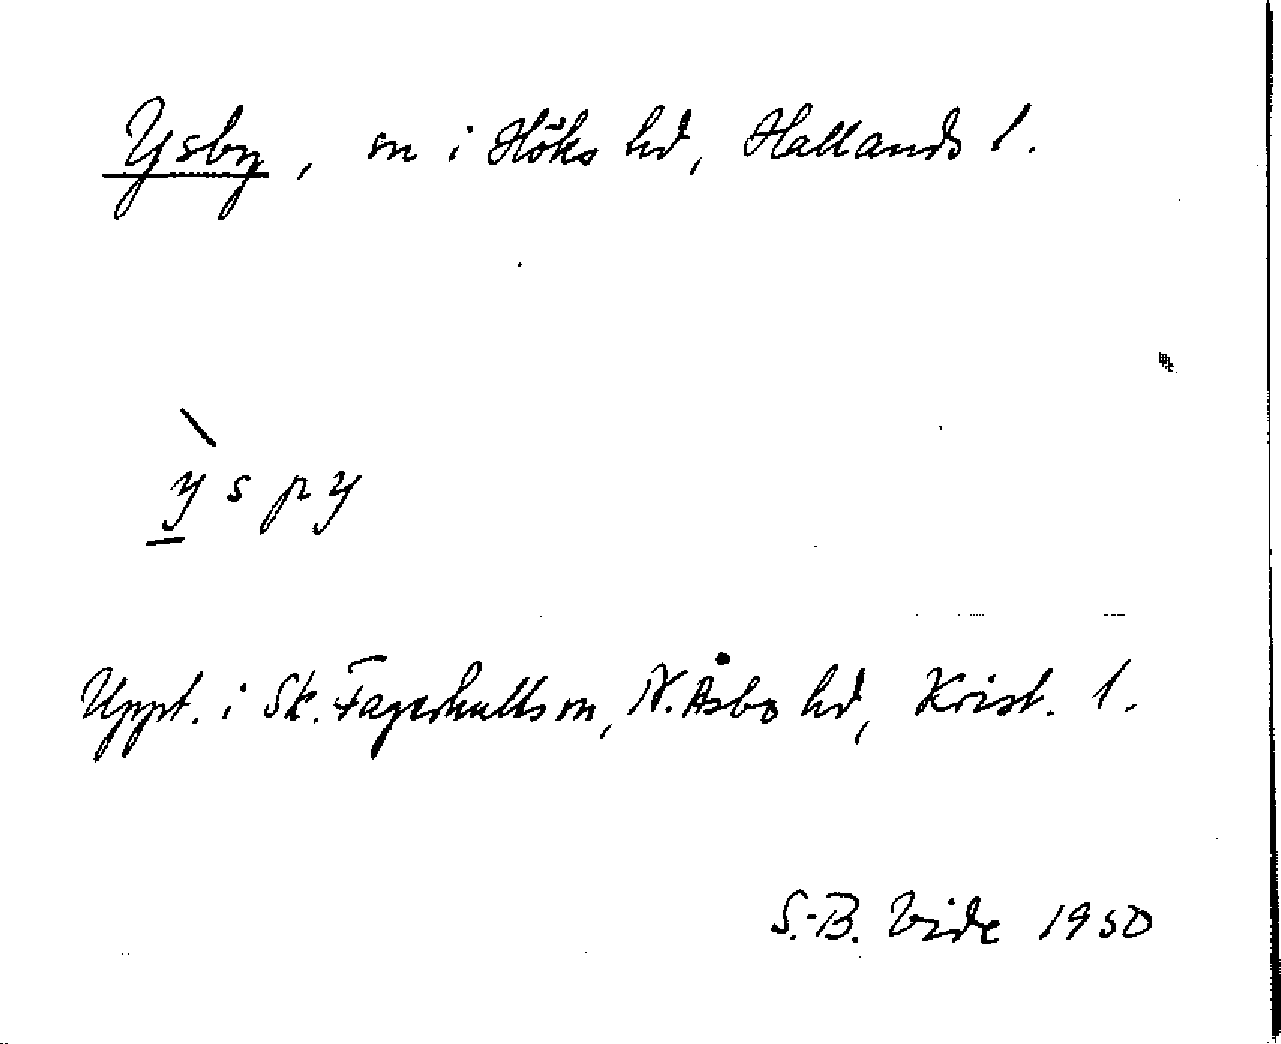 Ysby, sn i Höks hd, Hallands l.
ỳ̲ s p y
Uppt. i Sk. Fagerhults sn, N. Åsbo hd, Krist. l.
S.-B. Vide 1950